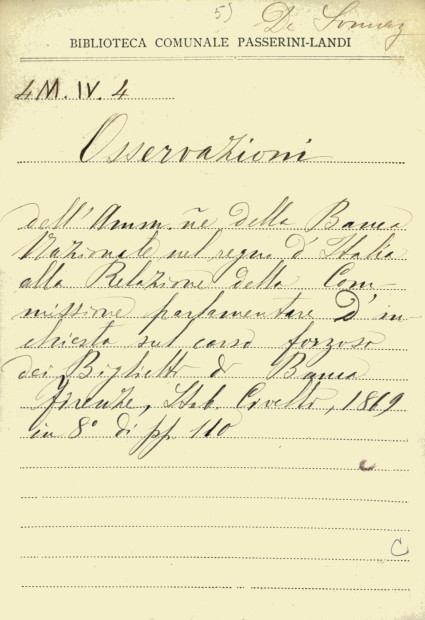 5) De Sonnaz
BIBLIOTECA COMUNALE PASSERINI-LANDI
4 M. IV. 4
Osservazioni
dell'Amm.ñe della Banca
Nazionale nel regno d'Italia
alla Relazione della Com-
missione parlamentare D'in
chiesta sul corso forzoso
dei Biglietto di Banca
Firenze, Stab. Civelli, 1869
in 8° di pp. 110
c
C